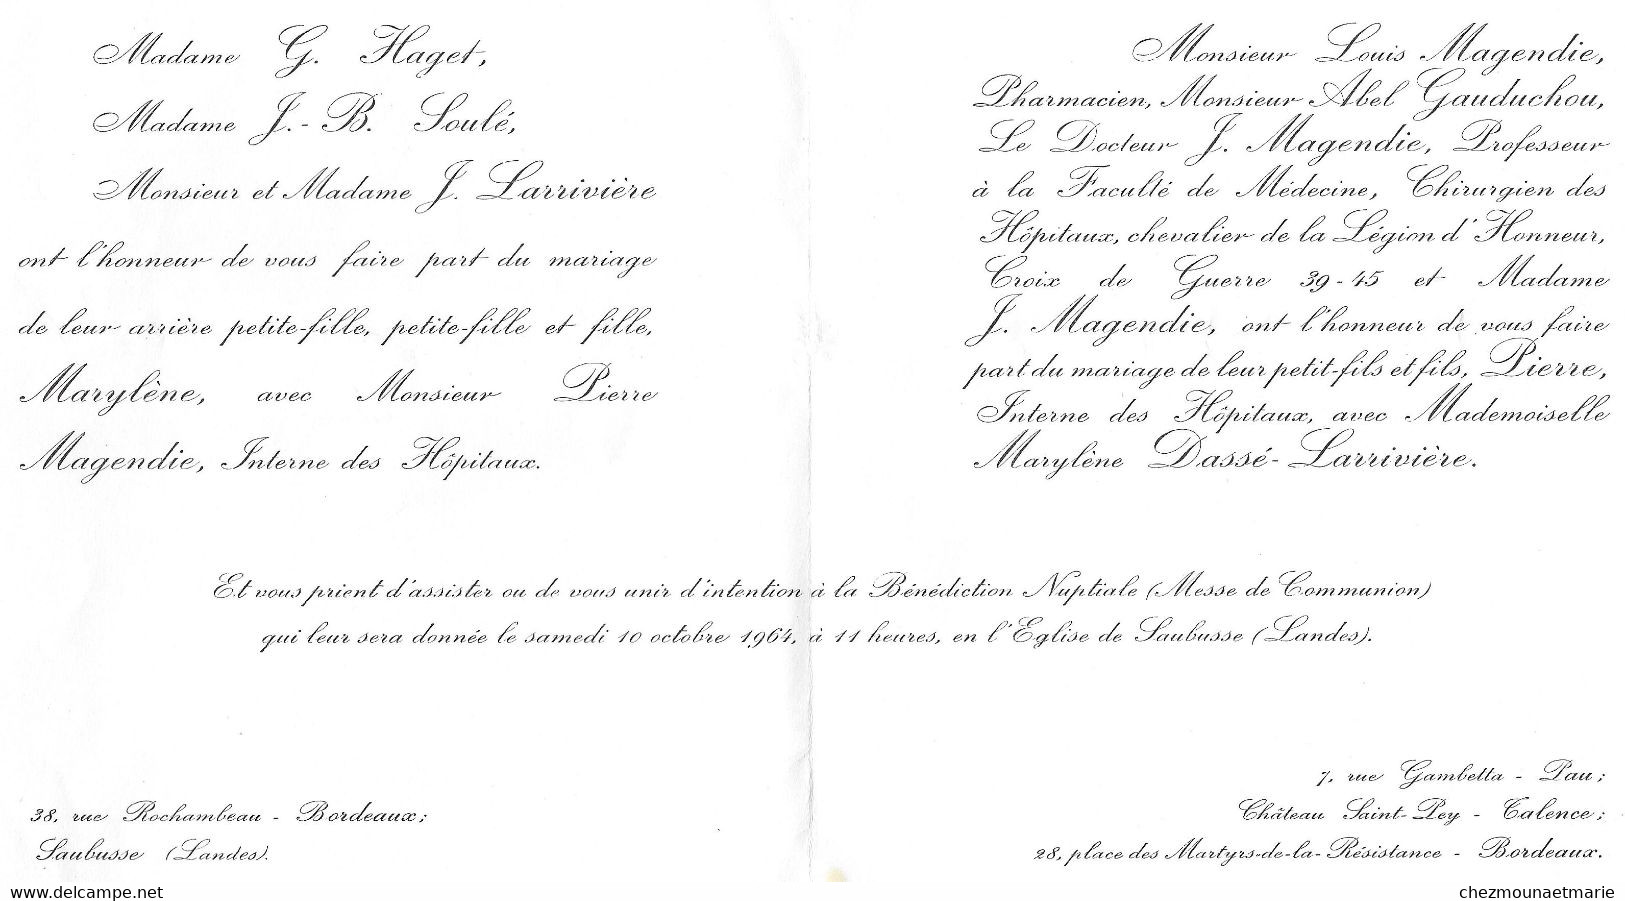 Madame G. Haget,
Madame J.-B. Soulé,
Monsieur et Madame J. Larrivière
ont l'honneur de vous faire part du mariage
de leur arrière petite-fille, petite-fille et fille,
Marylène, avec Monsieur Pierre
Magendie, Interne des Hôpitaux.
Monsieur Louis Magendie,
Pharmacien, Monsieur Abel Gauduchou,
Le Docteur J. Magendie, Professeur
à la Faculté de Médecine, Chirurgien des
Hôpitaux, chevalier de la Légion d'Honneur,
Croix de Guerre 39-45 et Madame
J. Magendie, ont l'honneur de vous faire
part du mariage de leur petit-fils et fils, Pierre,
Interne des Hôpitaux, avec Mademoiselle
Marylène Dassé-Larrivière.
Et vous prient d'assister ou de vous unir d'intention à la Bénédiction Nuptiale (Messe de Communion)
qui leur sera donnée le samedi 10 octobre 1964, à 11 heures, en l'Eglise de Saubusse (Landes).
38, rue Rochambeau - Bordeaux;
Saubusse (Landes).
7, rue Gambetta - Pau;
Château Saint-Pey - Talence;
28, place des Martyrs-de-la-Résistance - Bordeaux.
www.delcampe.net
chezmounaetmarie